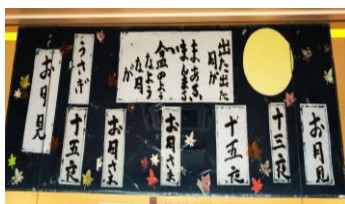 出た出た
月が
まあるい
まんまるい
盆のような
月が
うさぎ
お月見
十三夜
十五夜
お月さま
お月さま
十五夜
お月見